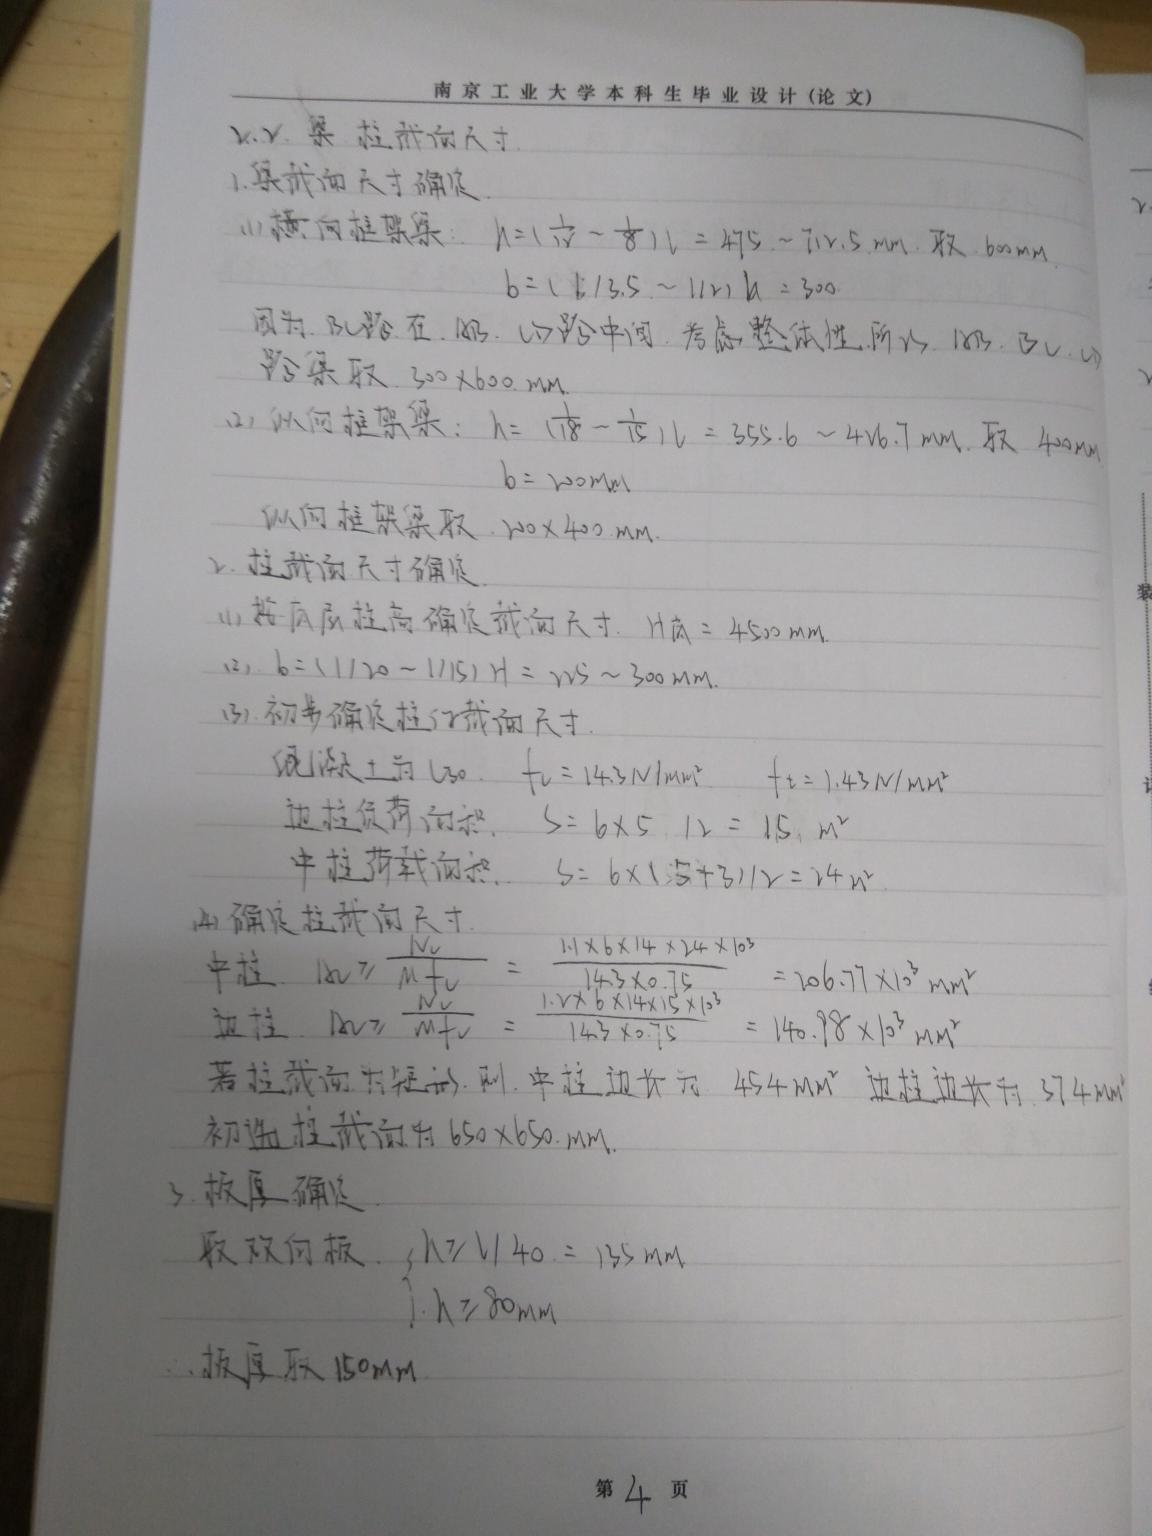 南京工业大学本科生毕业设计(论文)
2.2. 梁柱截面尺寸.
1.梁截面尺寸确定.
(1)横向框架梁: h=(1/12~1/8)l=475~712.5mm. 取600mm.
b=(1/3.5~1/2)h=300.
因为.BC跨.在.AB.CD跨中间.考虑整体性.所以.AB.BC.CD
跨梁取300×600.mm.
(2)纵向框架梁: h=(1/18-1/15)l=355.6~426.7mm.取400mm
b=200mm
纵向框架梁取.200×400.mm.
2.柱截面尺寸确定.
(1)按底层柱高确定截面尺寸. H底=4500mm.
(2). b=(1/20~1/15)H=225~300mm.
(3).初步确定柱子截面尺寸.
混凝土为C30. fc=14.3N/mm² ft=1.43N/mm²
边柱负荷面积. S=6×5/2=15.m²
中柱荷载面积. S=6×(5+3)/2=24m².
(4)确定柱截面尺寸.
中柱 Ac≥Nc/Mfc=1.1×6×14×24×10³/14.3×0.75=206.77×10³mm²
边柱. Ac≥Nc/Mfc=1.2×6×14×15×10³/14.3×0.75=140.98×10³mm²
若柱截面为矩形.则.中柱边长为454mm² 边柱边长为.374mm²
初选柱截面为650×650.mm.
3.板厚确定.
取双向板. {h≥l/40.=135mm
h≥80mm
∴板厚取150mm.
第4页
装